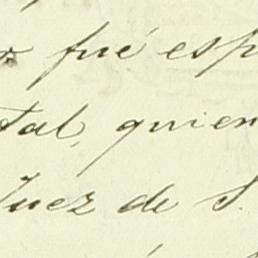 fué esp
tal, quien
Juez de S.